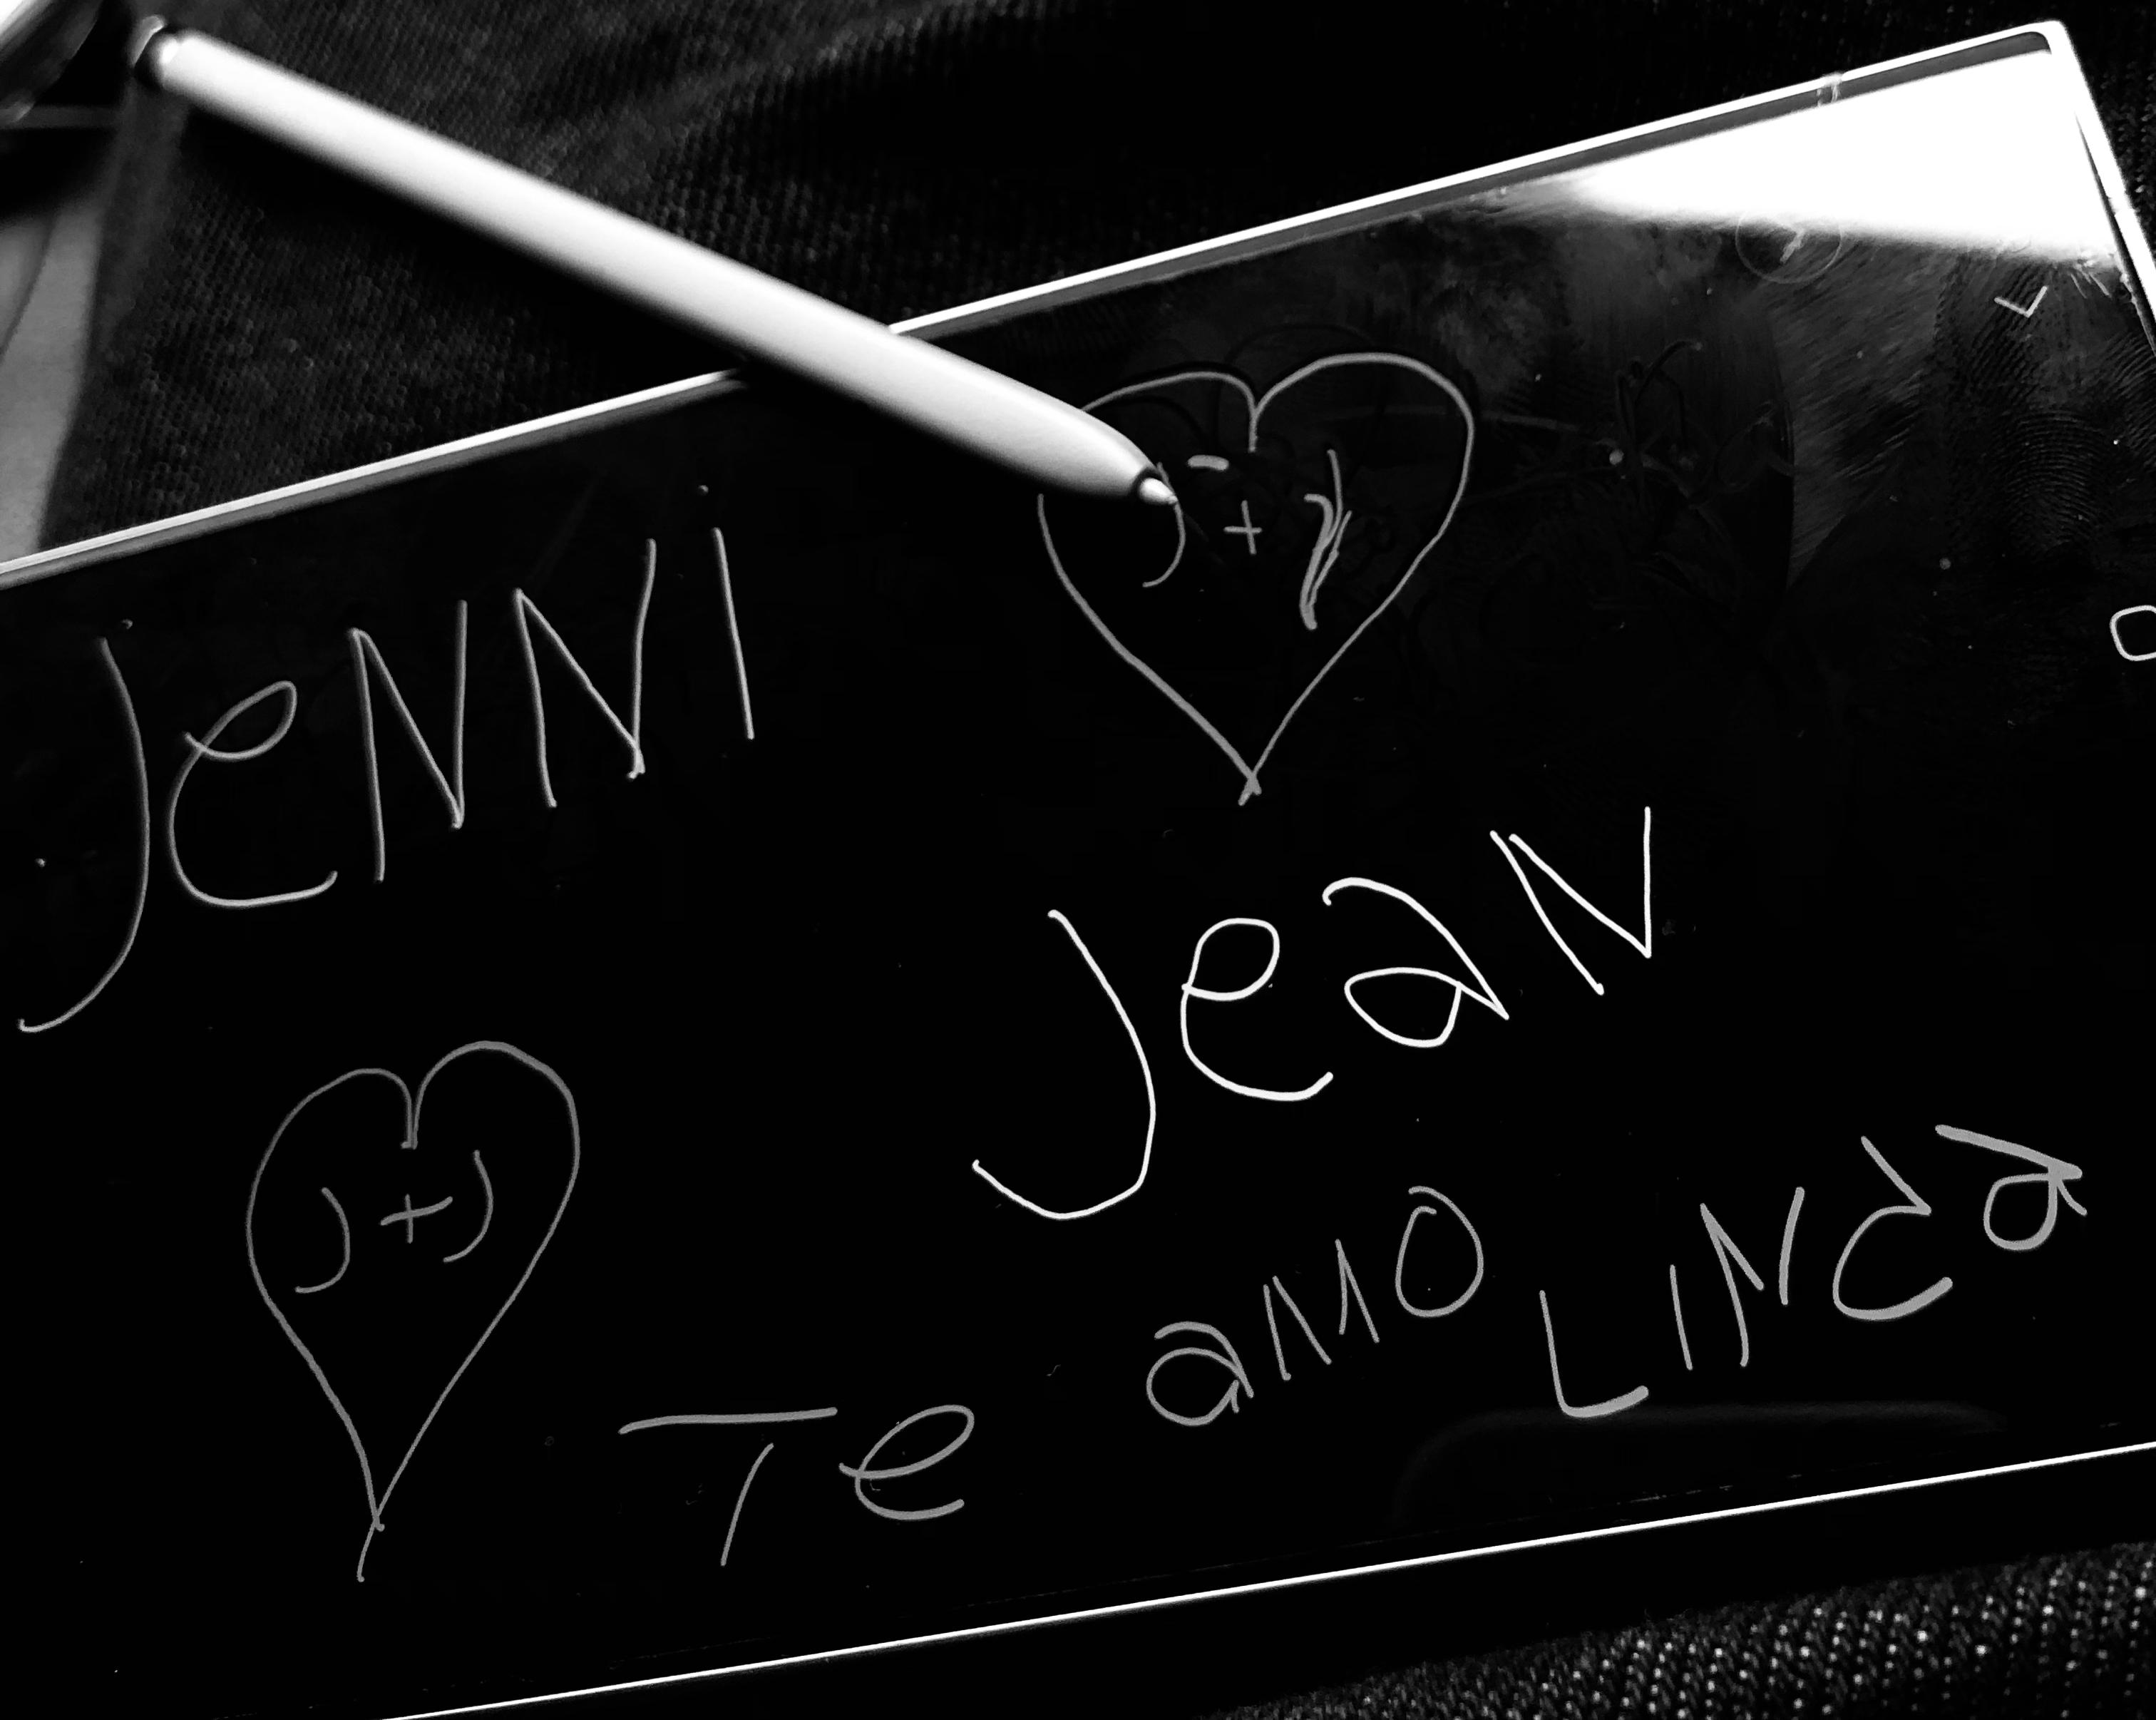 JeNNI
J + J
JeaN
J + J
Te aMO LINda